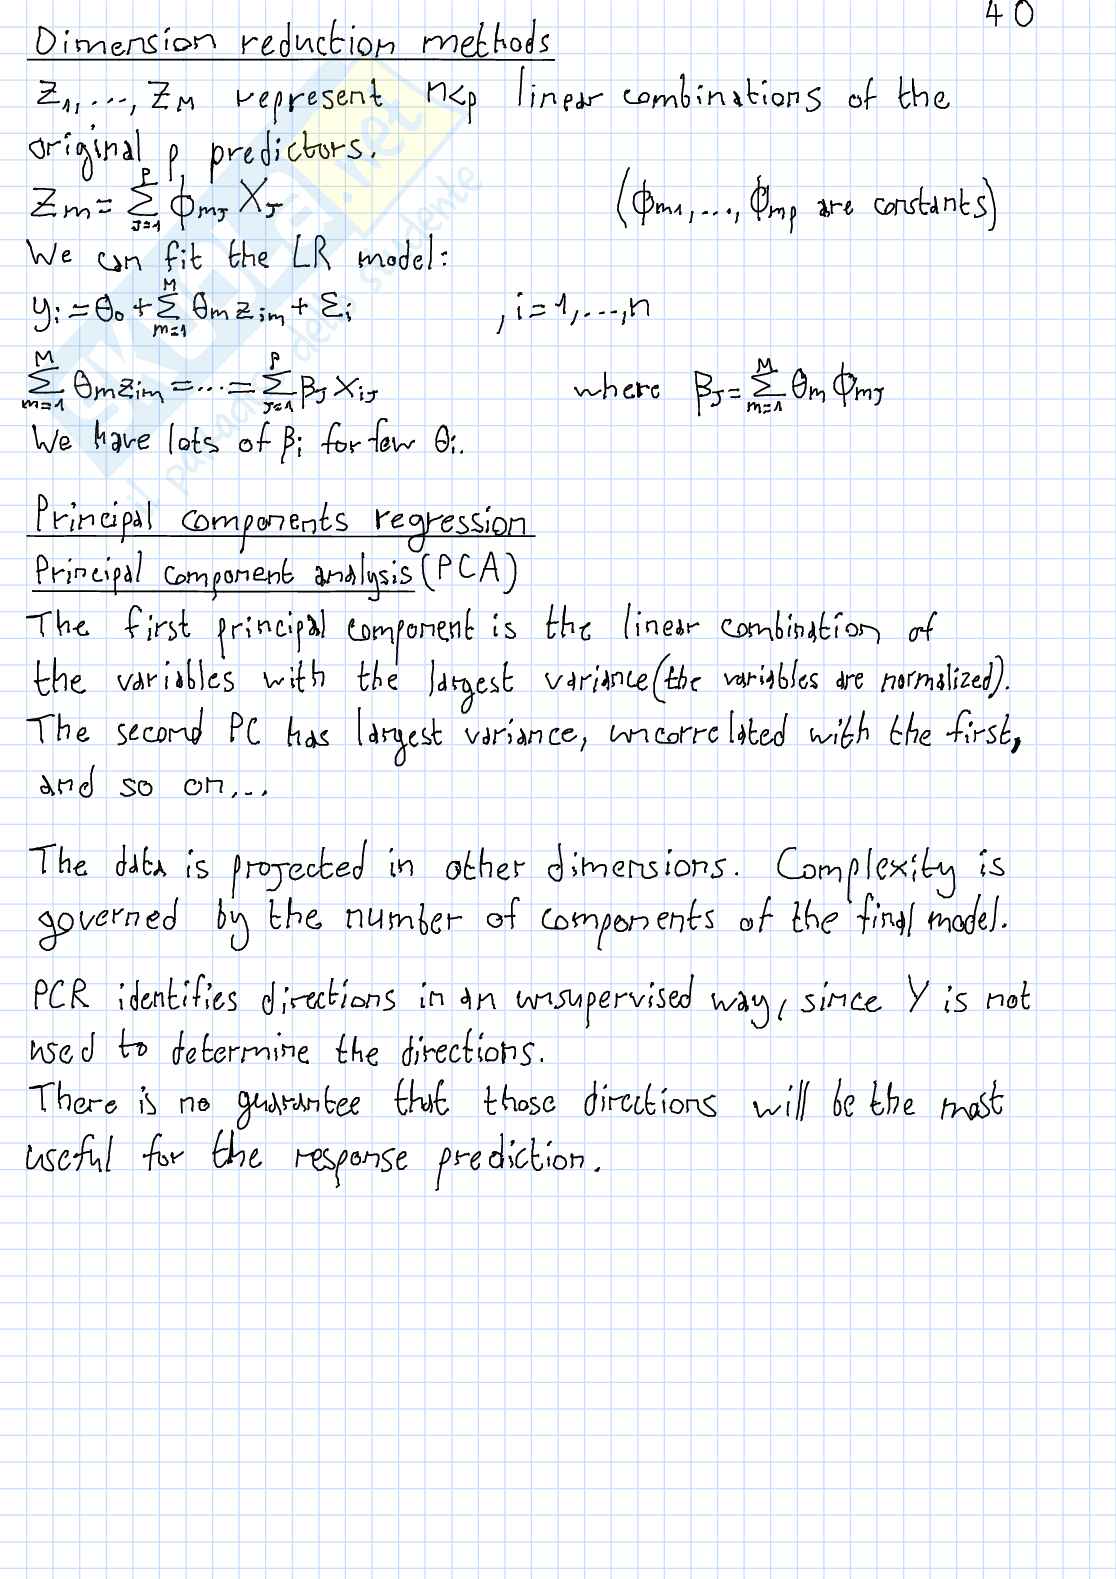 40
Dimension reduction methods
Z₁,...,Z_M represent n<p linear combinations of the
original p predictors.
Z_m = Σ_{J=1}^{p} ϕ_{mJ} X_J (ϕ_{m1},...,ϕ_{mp} are constants)
We can fit the LR model:
y_i = θ₀ + Σ_{m=1}^{M} θ_m z_{im} + ε_i , i=1,...,n
Σ_{m=1}^{M} θ_m z_{im} = ... = Σ_{J=1}^{p} β_J X_{iJ} where β_J = Σ_{m=1}^{M} θ_m ϕ_{mJ}
We have lots of β_i for few θ_i.
Principal components regression
Principal component analysis (PCA)
The first principal component is the linear combination of
the variables with the largest variance (the variables are normalized).
The second PC has largest variance, uncorrelated with the first,
and so on...
The data is projected in other dimensions. Complexity is
governed by the number of components of the final model.
PCR identifies directions in an unsupervised way, since Y is not
used to determine the directions.
There is no guarantee that those directions will be the most
useful for the response prediction.